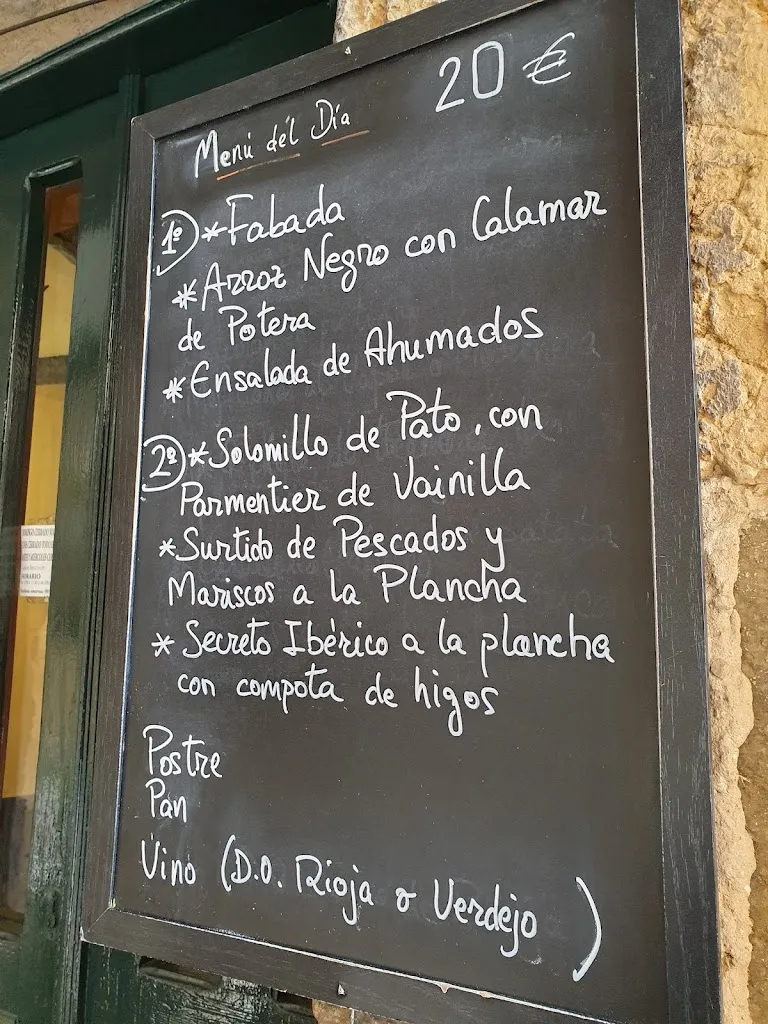 20 €
Menú dél Día
1º *Fabada
*Arroz Negro con Calamar
de Potera
*Ensalada de Ahumados
2º *Solomillo de Pato, con
Parmentier de Vainilla
*Surtido de Pescados y
Mariscos a la Plancha
*Secreto Ibérico a la plancha
con compota de higos
Postre
Pan
Vino (D.O. Rioja o Verdejo)